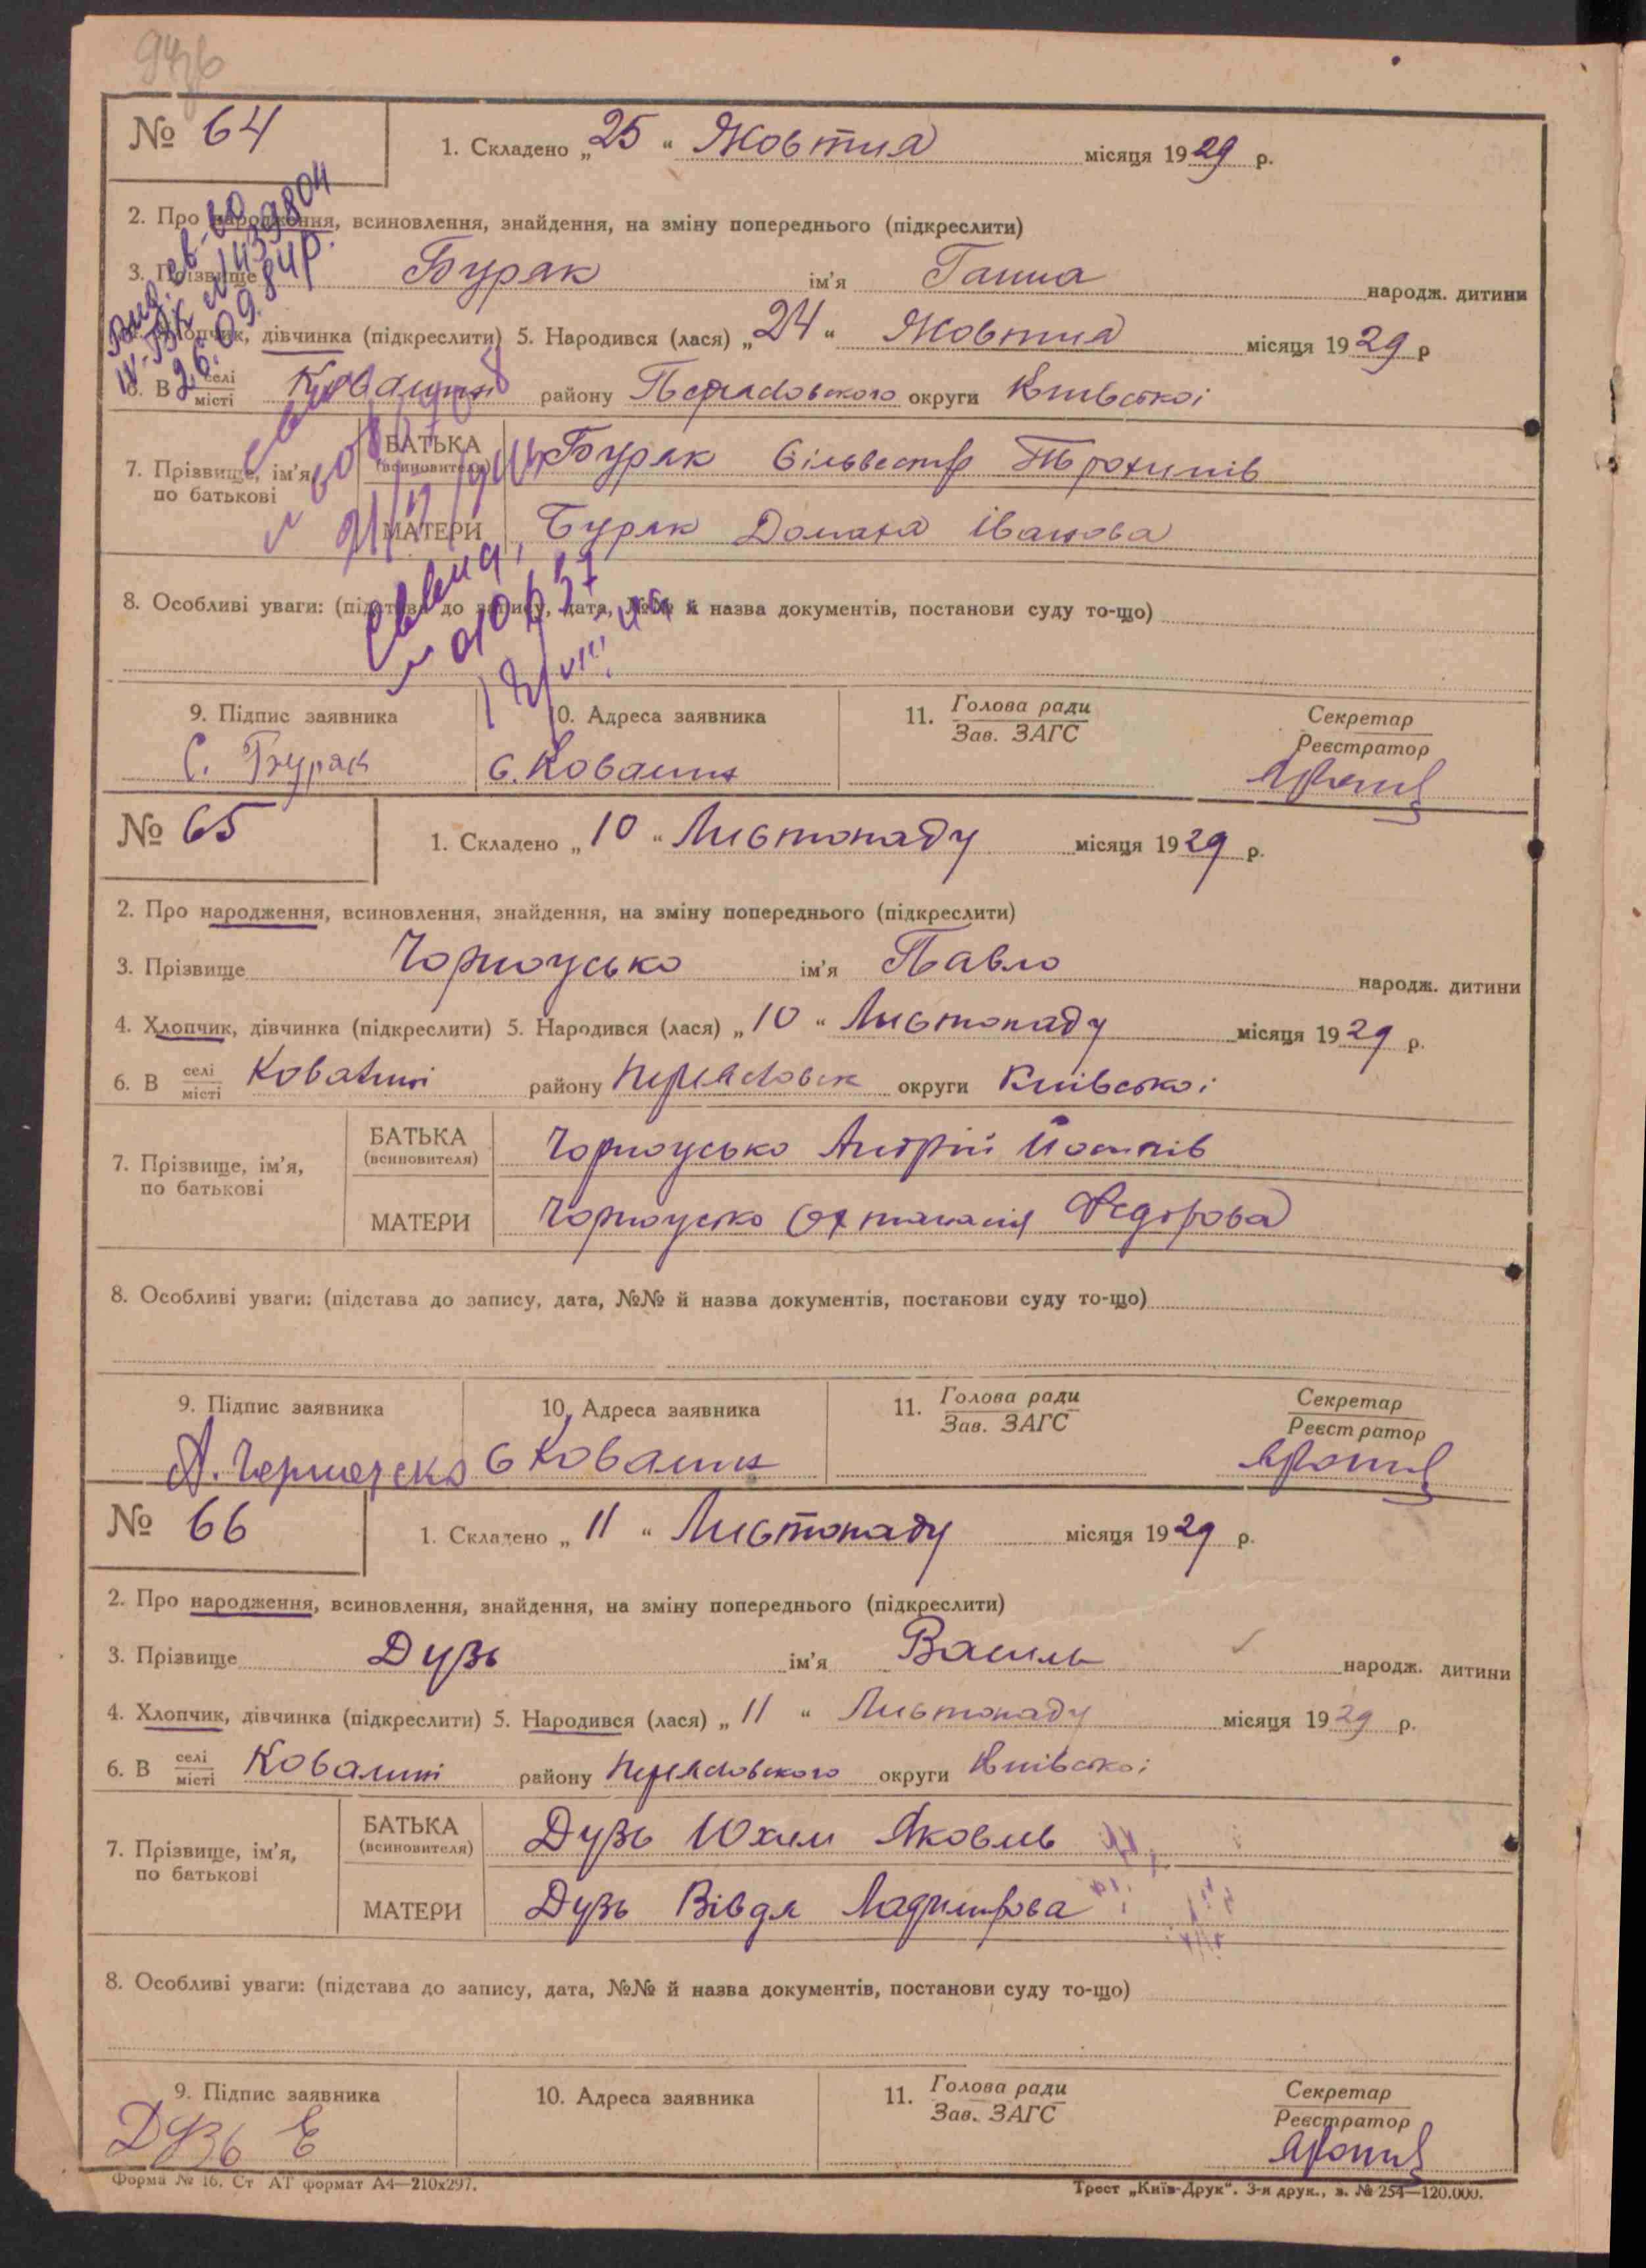 94зв
№ 64
1. Складено „25“ Жовтня місяця 1929 р.
2. Про народження, всиновлення, знайдення, на зміну попереднього (підкреслити)
3. Прізвище Буряк ім'я Ганна народж. дитини
хлопчик, дівчинка (підкреслити) 5. Народився (лася) „24“ Жовтня місяця 1929 р
6. В селі місті Ковалині району Переясловского округи Київської
7. Прізвище, ім'я, по батькові
БАТЬКА (всиновителя) Буряк Сільвестр Трохимів
МАТЕРИ Буряк Домаха Іванова
Вид. св-во
IV-БК № 439804
26.09.84р.
8. Особливі уваги: (підстава до запису, дата, №№ й назва документів, постанови суду то-що)
9. Підпис заявника
10. Адреса заявника
11. Голова ради Зав. ЗАГС
Секретар Реєстратор
С. Буряк
с. Ковалин
№ 65
1. Складено „10“ Листопаду місяця 1929 р.
2. Про народження, всиновлення, знайдення, на зміну попереднього (підкреслити)
3. Прізвище Чорноусько ім'я Павло народж. дитини
4. Хлопчик, дівчинка (підкреслити) 5. Народився (лася) „10“ Листопаду місяця 1929 р.
6. В селі місті Ковалині району Переясловск округи Київської
7. Прізвище, ім'я, по батькові
БАТЬКА (всиновителя) Чорноусько Андрій Йосипів
МАТЕРИ Чорноусько Федорова
8. Особливі уваги: (підстава до запису, дата, №№ й назва документів, постанови суду то-що)
9. Підпис заявника
10. Адреса заявника
11. Голова ради Зав. ЗАГС
Секретар Реєстратор
А. Черноуско
с Ковалин
№ 66
1. Складено „11“ Листопаду місяця 1929 р.
2. Про народження, всиновлення, знайдення, на зміну попереднього (підкреслити)
3. Прізвище Дузь ім'я Василь народж. дитини
4. Хлопчик, дівчинка (підкреслити) 5. Народився (лася) „11“ Листопаду місяця 1929 р.
6. В селі місті Ковалині району Переясловского округи Київської
7. Прізвище, ім'я, по батькові
БАТЬКА (всиновителя) Дузь Юхим Яковлів
МАТЕРИ Дузь Вівдя Ладимирова
8. Особливі уваги: (підстава до запису, дата, №№ й назва документів, постанови суду то-що)
9. Підпис заявника
10. Адреса заявника
11. Голова ради Зав. ЗАГС
Секретар Реєстратор
Дузь Е
Форма № 16. Ст АТ формат А4—210х297.
Трест „Київ-Друк“. 3-я друк., з. № 254—120.000.